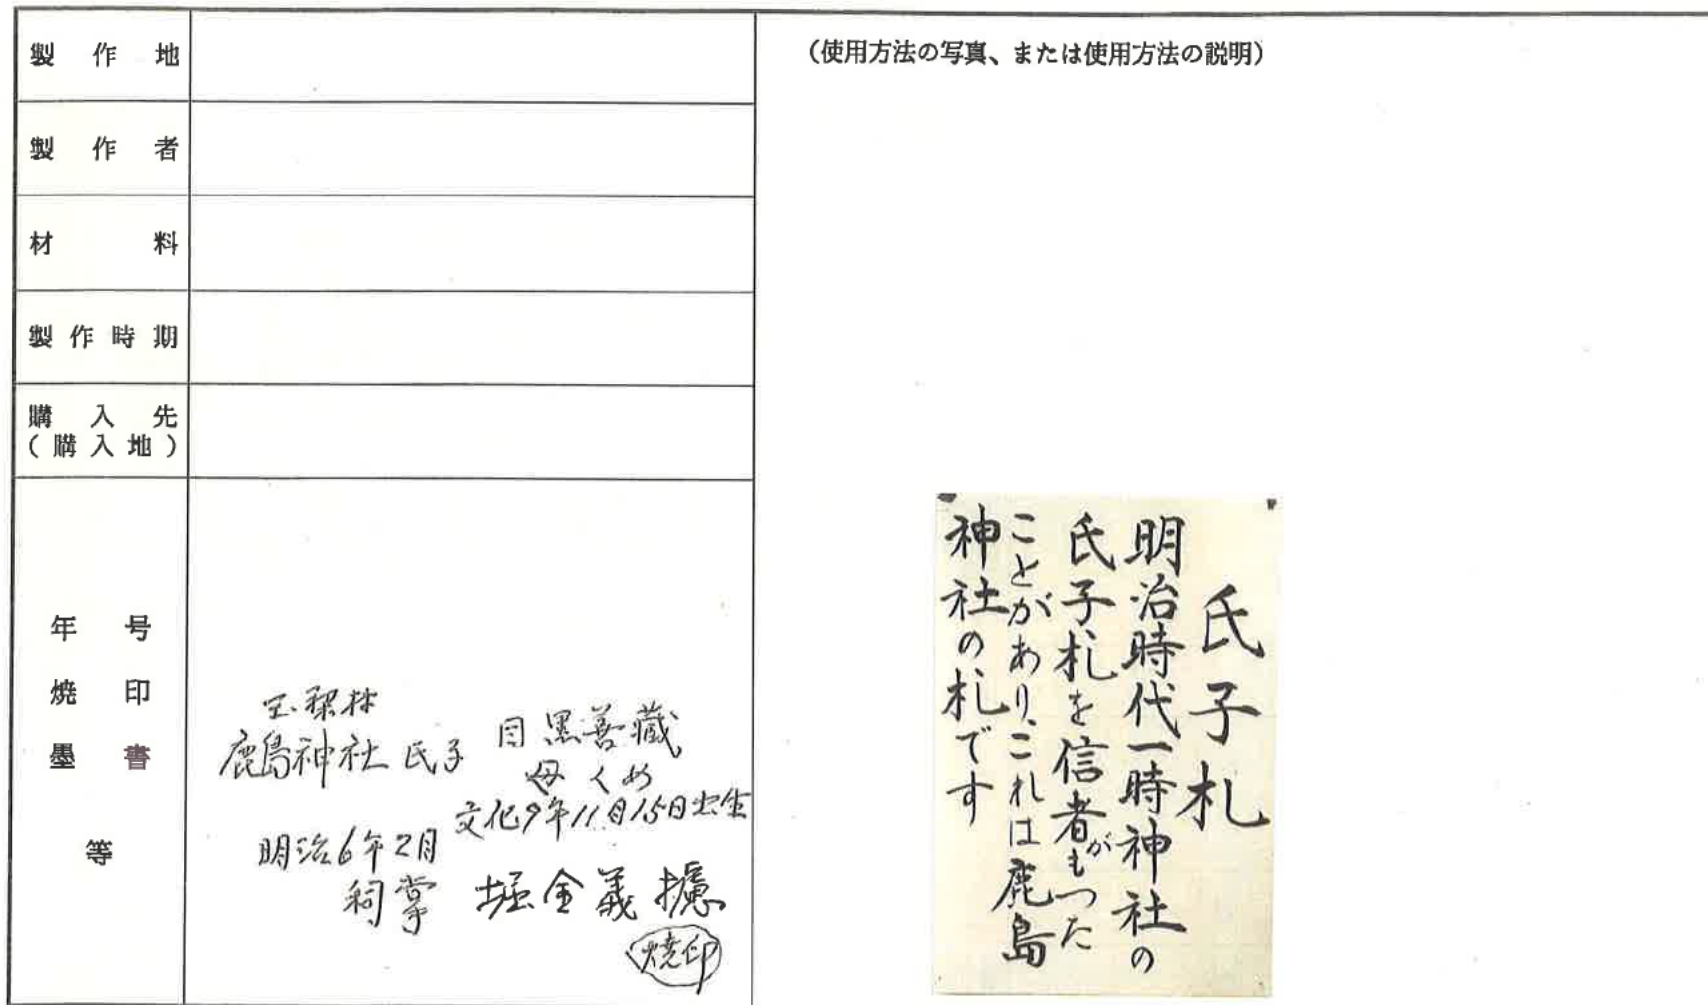 製作地
製作者
材料
製作時期
購入先
(購入地)
年号
焼印
墨書
等
鹿島神社 氏子
目黒善蔵
母 くめ
文化9年11月15日出生
明治6年2月
祠掌 堀金義
焼印
(使用方法の写真、または使用方法の説明)
氏子札
明治時代一時神社の
氏子札を信者がもつた
ことがあり、これは鹿島
神社の札です